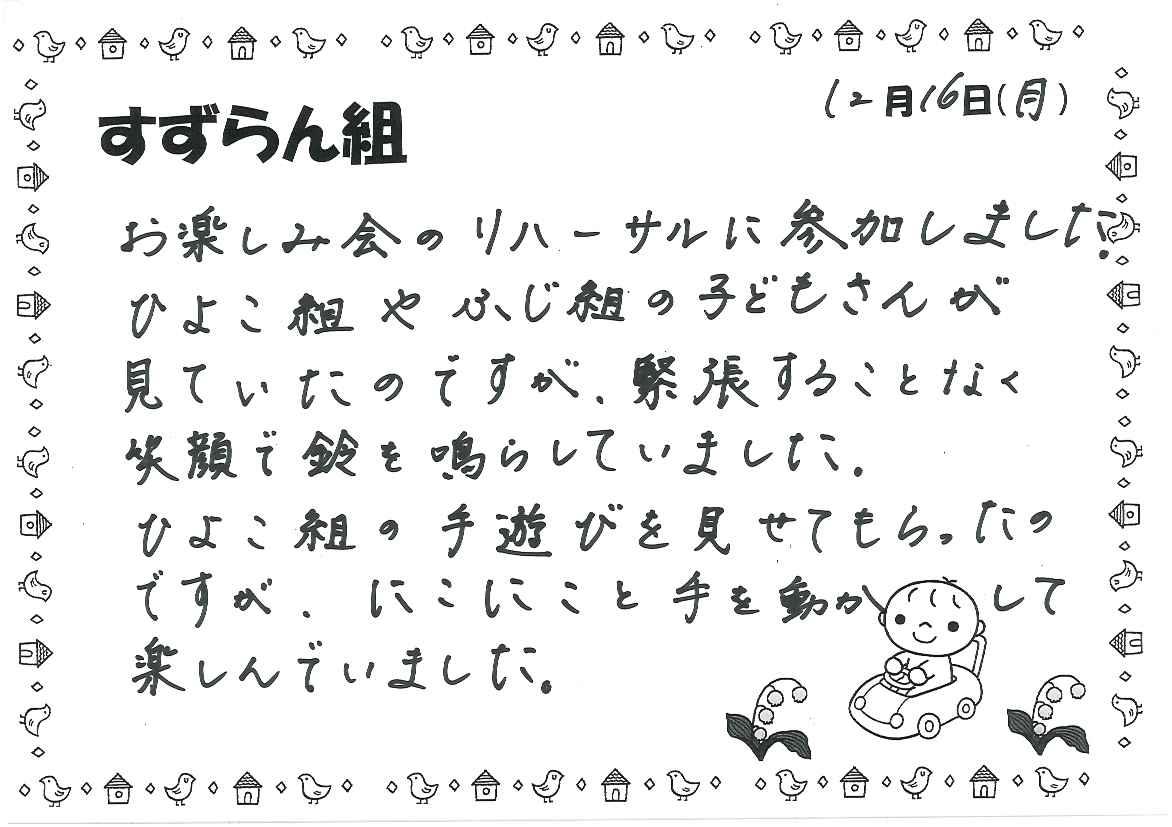 12月16日(月)
すずらん組
お楽しみ会のリハーサルに参加しました。
ひよこ組やふじ組の子どもさんが
見ていたのですが、緊張することなく
笑顔で鈴を鳴らしていました。
ひよこ組の手遊びを見せてもらったの
ですが、にこにこと手を動かして
楽しんでいました。